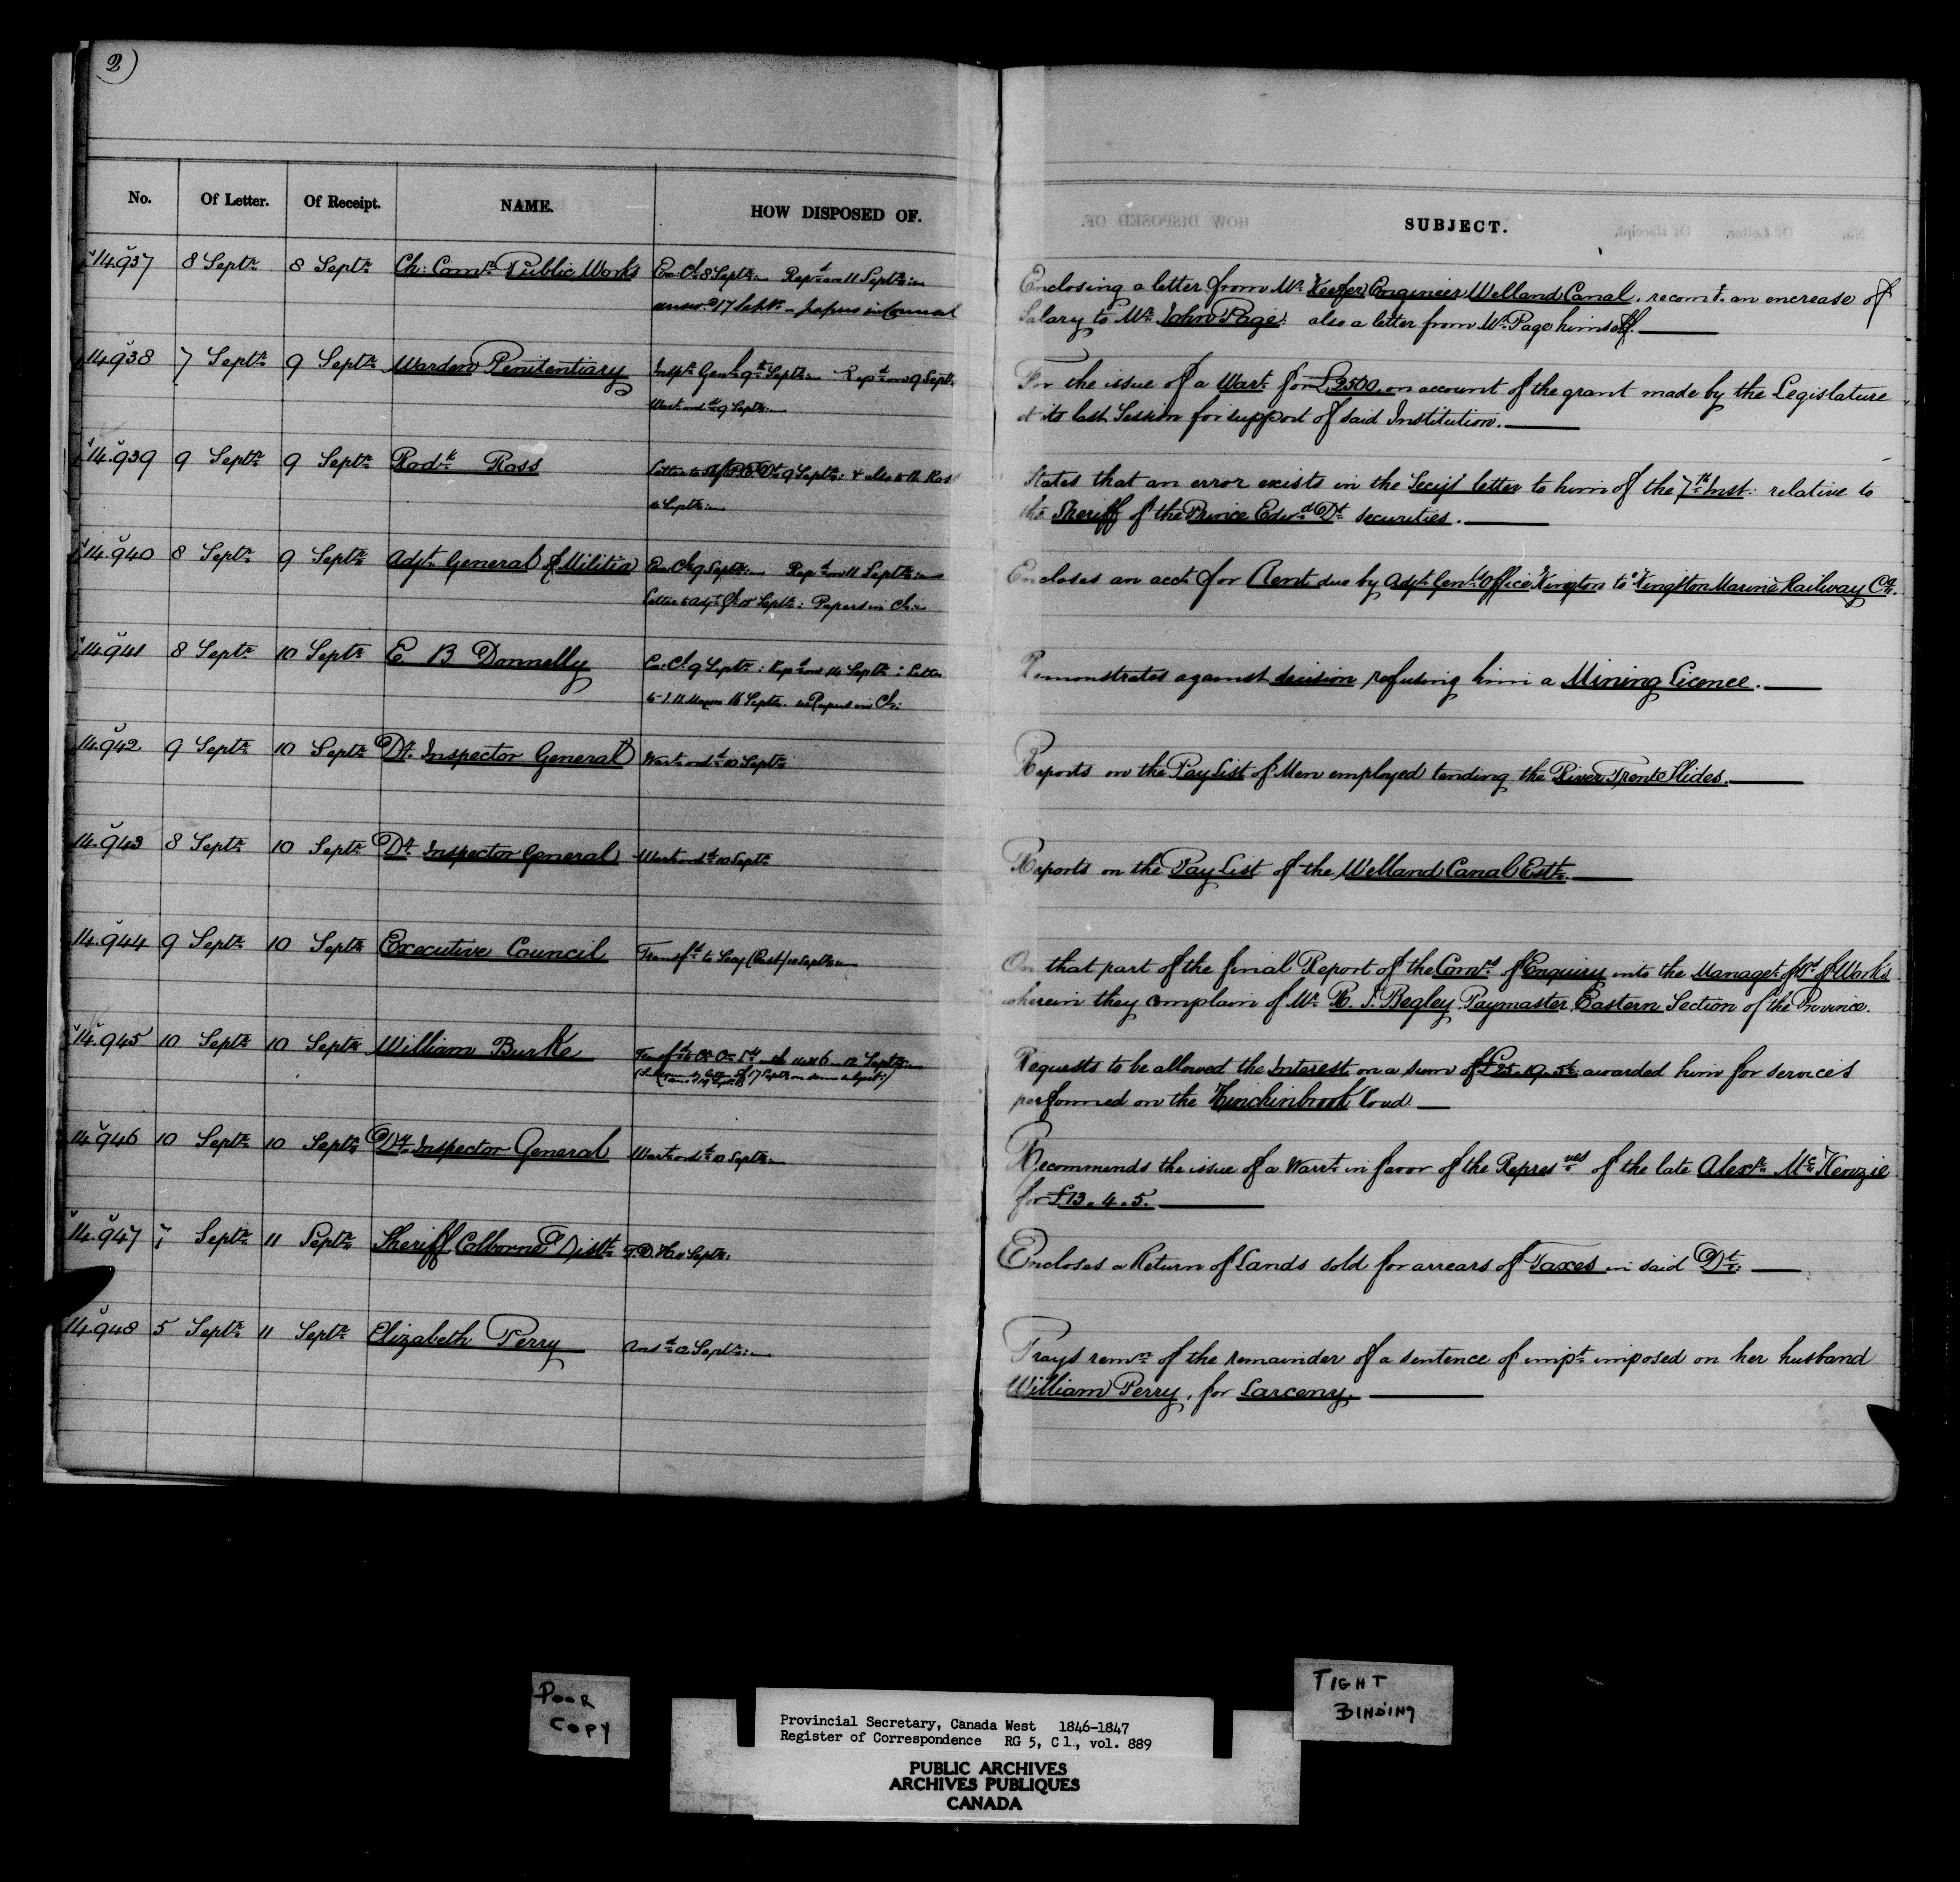 2)
No. Of Letter. Of Receipt. NAME. HOW DISPOSED OF. SUBJECT.
14.937 8 Septr. 8 Septr. Ch: Comr. Public Works Ex: Cl. 8 Septr. Repd. on 11 Septr. Enclosing a letter from Mr. Keefer Engineer Welland Canal, recomg. an encrease of
answd. 17 Septr. – papers in Council Salary to Mr. John Page. also a letter from Mr. Page himself.
14.938 7 Septr. 9 Septr. Warden Penitentiary Inspr. Genl. 9th Septr. Repd. on 9 Septr. For the issue of a Wart. for £2500. on account of the grant made by the Legislature
Wart. ordd. 9 Septr. at its last Session for support of said Institution.
14.939 9 Septr. 9 Septr. Rodk. Ross Letter to 9 Septr: & also to R. Ross States that an error exists in the Secy's letter to him of the 7th Inst: relative to
Septr. the Sheriff of the Prince Edwd. Dt. securities.
14.940 8 Septr. 9 Septr. Adjt. General of Militia Ex. Cl. 9 Septr. Repd. on 11 Septr. Encloses an acct. for Rent due by Adjt. Genl's Office Kingston to Kingston Marine Railway Co.
Letter to Adjt. Gl. Septr: Papers in Cl.
14.941 8 Septr. 10 Septr. E B Donnelly Ex: Cl. 9 Septr: Repd. on 14 Septr: Letter Remonstrates against decision refusing him a Mining Licence.
to 16 Septr. Papers in Cl:
14.942 9 Septr. 10 Septr. Dy. Inspector General Wart. ordd. 10 Septr. Reports on the Pay List of Men employed tending the River Trent Slides.
14.943 8 Septr. 10 Septr. Dy. Inspector General Wart. ordd. 10 Septr. Reports on the Pay List of the Welland Canal Estt.
14.944 9 Septr. 10 Septr. Executive Council Transfd. to Secy (East) 10 Septr. On that part of the final Report of the Comrs. of Enquiry into the Managt. of Bd. of Works
wherein they complain of Mr. R. S. Begley Paymaster, Eastern Section of the Province.
14.945 10 Septr. 10 Septr. William Burke 12 Septr. Requests to be allowed the Interest on a sum of £25.19.5½ awarded him for services
of 17 Septr. on same subject) performed on the Hinchinbrook Road
14.946 10 Septr. 10 Septr. Dy. Inspector General Wart. ordd. 10 Septr. Recommends the issue of a Warrt. in favor of the Represves of the late Alexr. McKenzie
for £13.4.5.
14.947 7 Septr. 11 Septr. Sheriff Colborne Distt. Septr: Encloses a Return of Lands sold for arrears of Taxes in said Dt:
14.948 5 Septr. 11 Septr. Elizabeth Perry Ansd. 12 Septr. Prays remn. of the remainder of a sentence of impt. imposed on her husband
William Perry, for Larceny.
POOR
COPY
TIGHT
BINDING
Provincial Secretary, Canada West 1846-1847
Register of Correspondence RG 5, C 1., vol. 889
PUBLIC ARCHIVES
ARCHIVES PUBLIQUES
CANADA